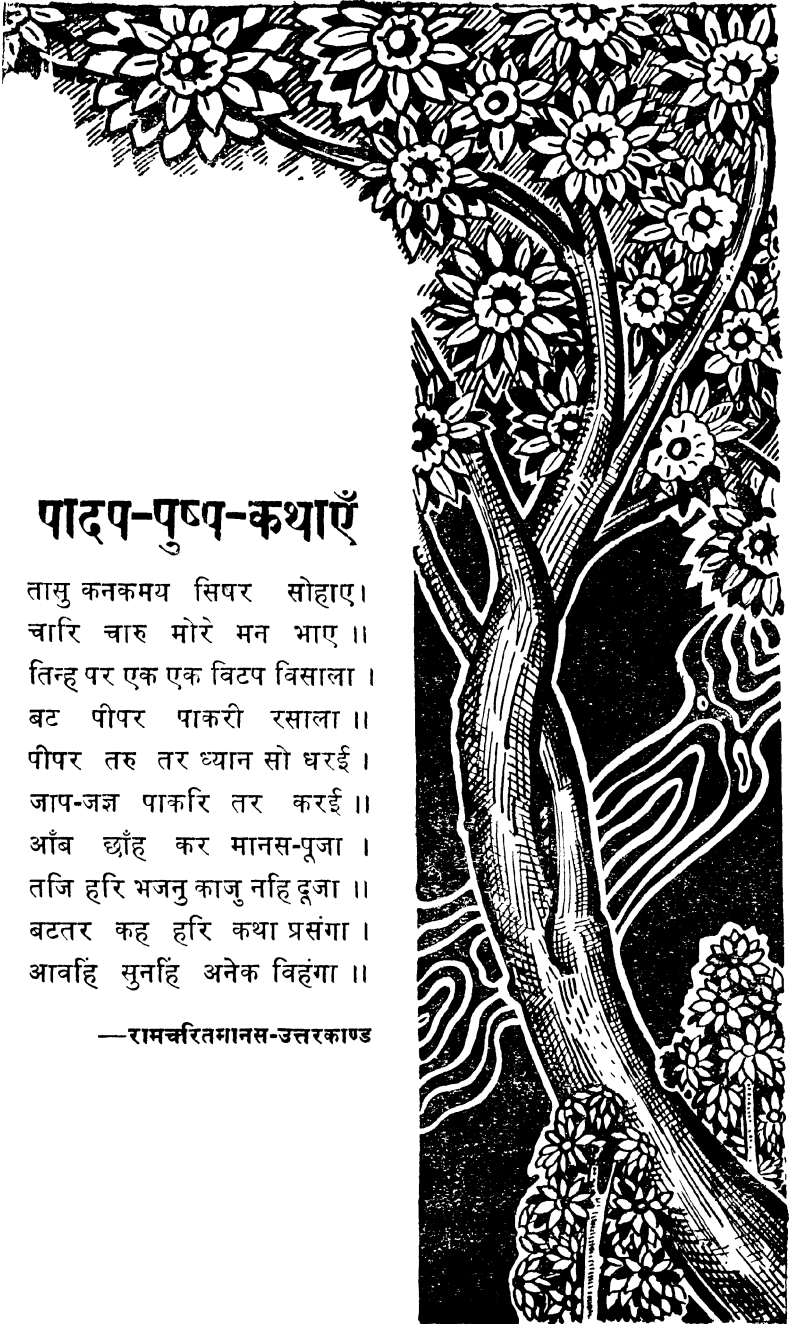 पादप-पुष्प-कथाएँ
तासु कनकमय सिषर सोहाए।
चारि चारु मोरे मन भाए ॥
तिन्ह पर एक एक विटप विसाला ।
बट पीपर पाकरी रसाला ॥
पीपर तरु तर ध्यान सो धरई ।
जाप-जज्ञ पाकरि तर करई ॥
आँब छाँह कर मानस-पूजा ।
तजि हरि भजनु काजु नहि दूजा ॥
बटतर कह हरि कथा प्रसंगा ।
आवहिं सुनहिं अनेक विहंगा ॥
—रामचरितमानस-उत्तरकाण्ड